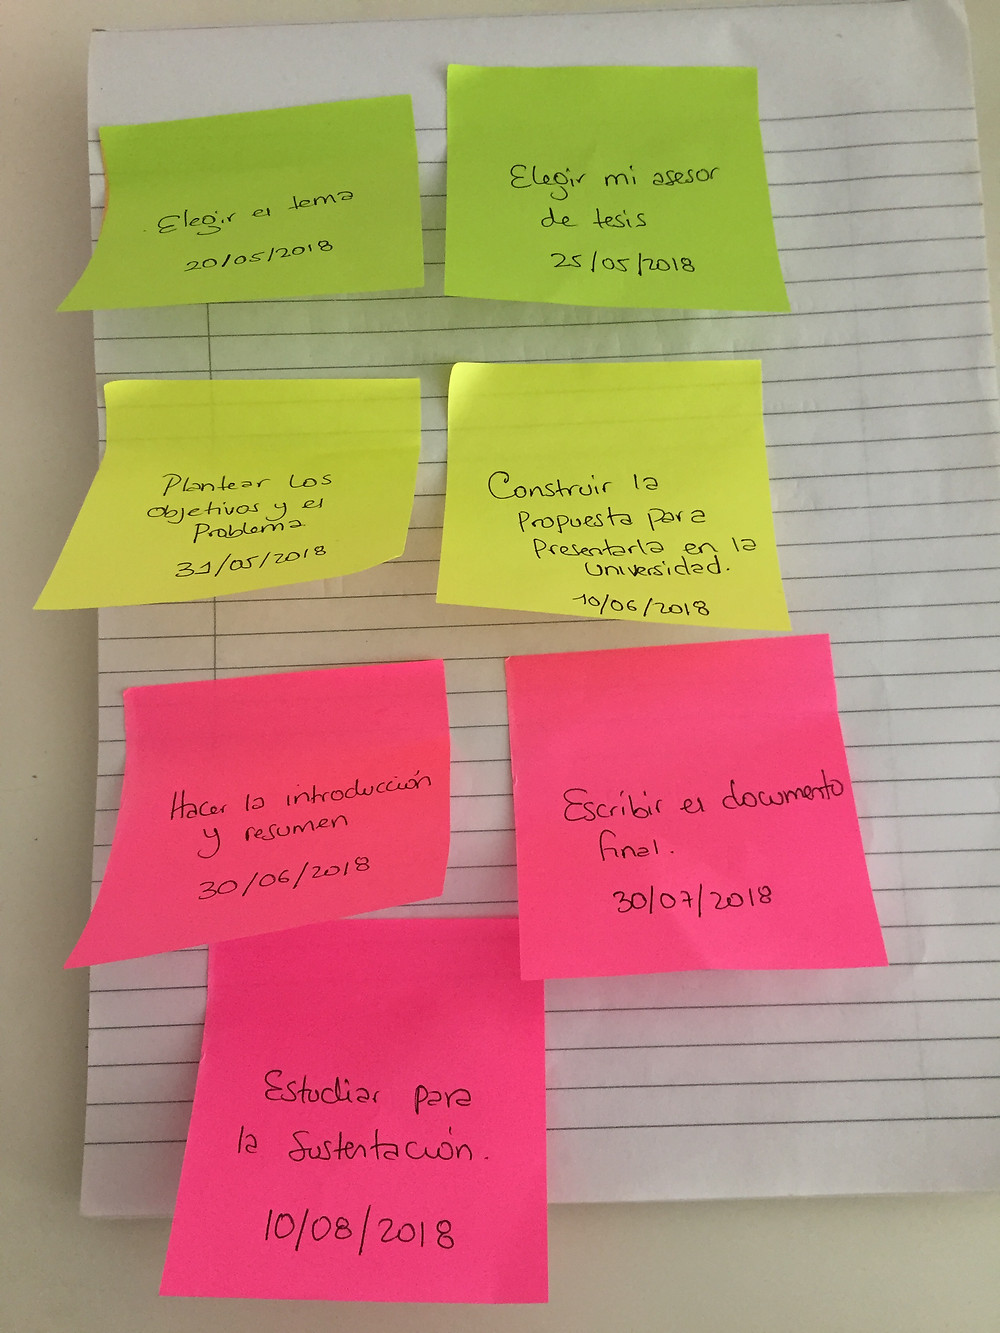 Elegir el tema
20/05/2018
Elegir mi asesor
de tesis
25/05/2018
Plantear los
objetivos y el
Problema.
31/05/2018
Construir la
Propuesta para
Presentarla en la
Universidad.
10/06/2018
Hacer la introducción
y resumen
30/06/2018
Escribir el documento
final.
30/07/2018
Estudiar para
la Sustentación.
10/08/2018